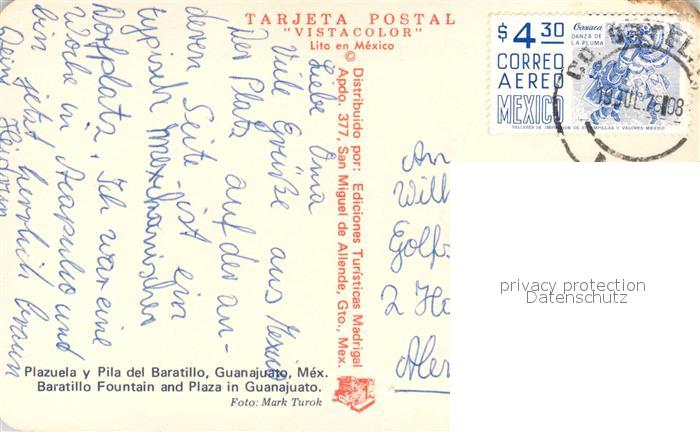 TARJETA POSTAL
"VISTACOLOR"
Lito en México
©
Distribuido por: Ediciones Turísticas Madrigal
Apdo. 377, San Miguel de Allende, Gto., Mex.
Liebe Oma
Viele Grüße aus Mexico
Der Platz auf der an-
deren Seite ist ein
typisch mexikanischer
Dorfplatz. Ich war eine
Woche in Acapulco und
bin jetzt herrlich braun
Dein Heidrun
Plazuela y Pila del Baratillo, Guanajuato, Méx.
Baratillo Fountain and Plaza in Guanajuato.
Foto: Mark Turok
$4.30
CORREO
AEREO
MEXICO
Oaxaca
DANZA DE
LA PLUMA
TALLERES DE IMPRESION DE ESTAMPILLAS Y VALORES MEXICO
19 JUL. 76
An
Will
Golfs
2 Ha
privacy protection
Datenschutz